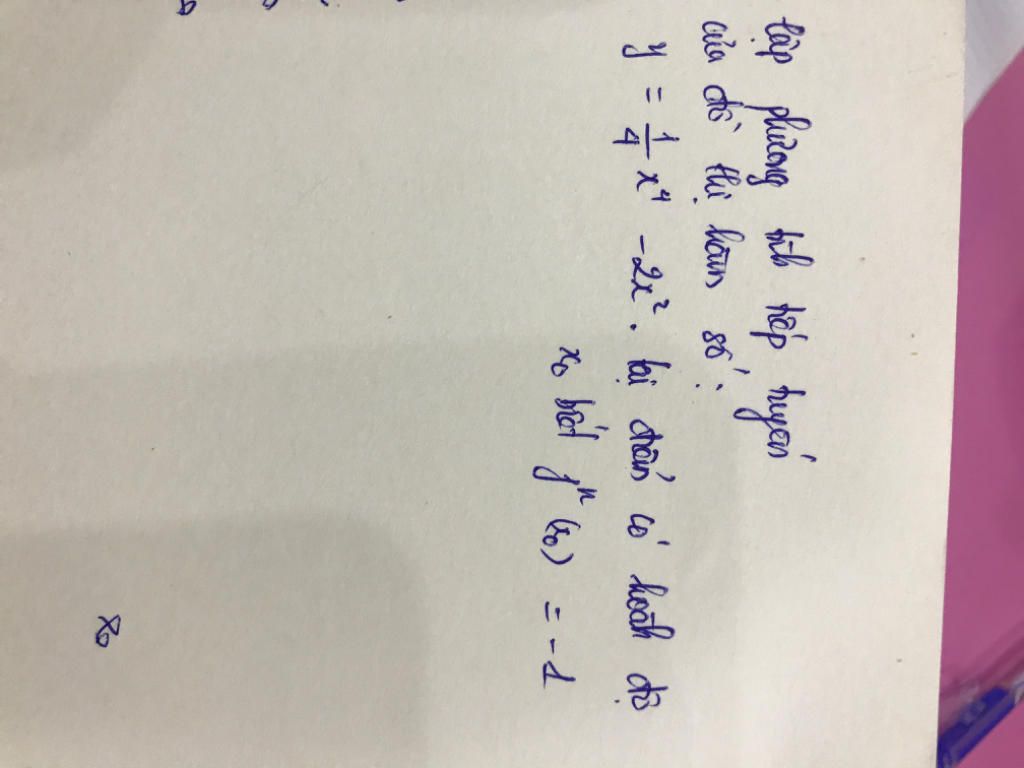 lập phương tình tiếp tuyến
của đồ thị hàm số:
y = \frac{1}{4} x⁴ - 2x². tại điểm có hoành độ
x₀ biết f" (x₀) = -1
x₀